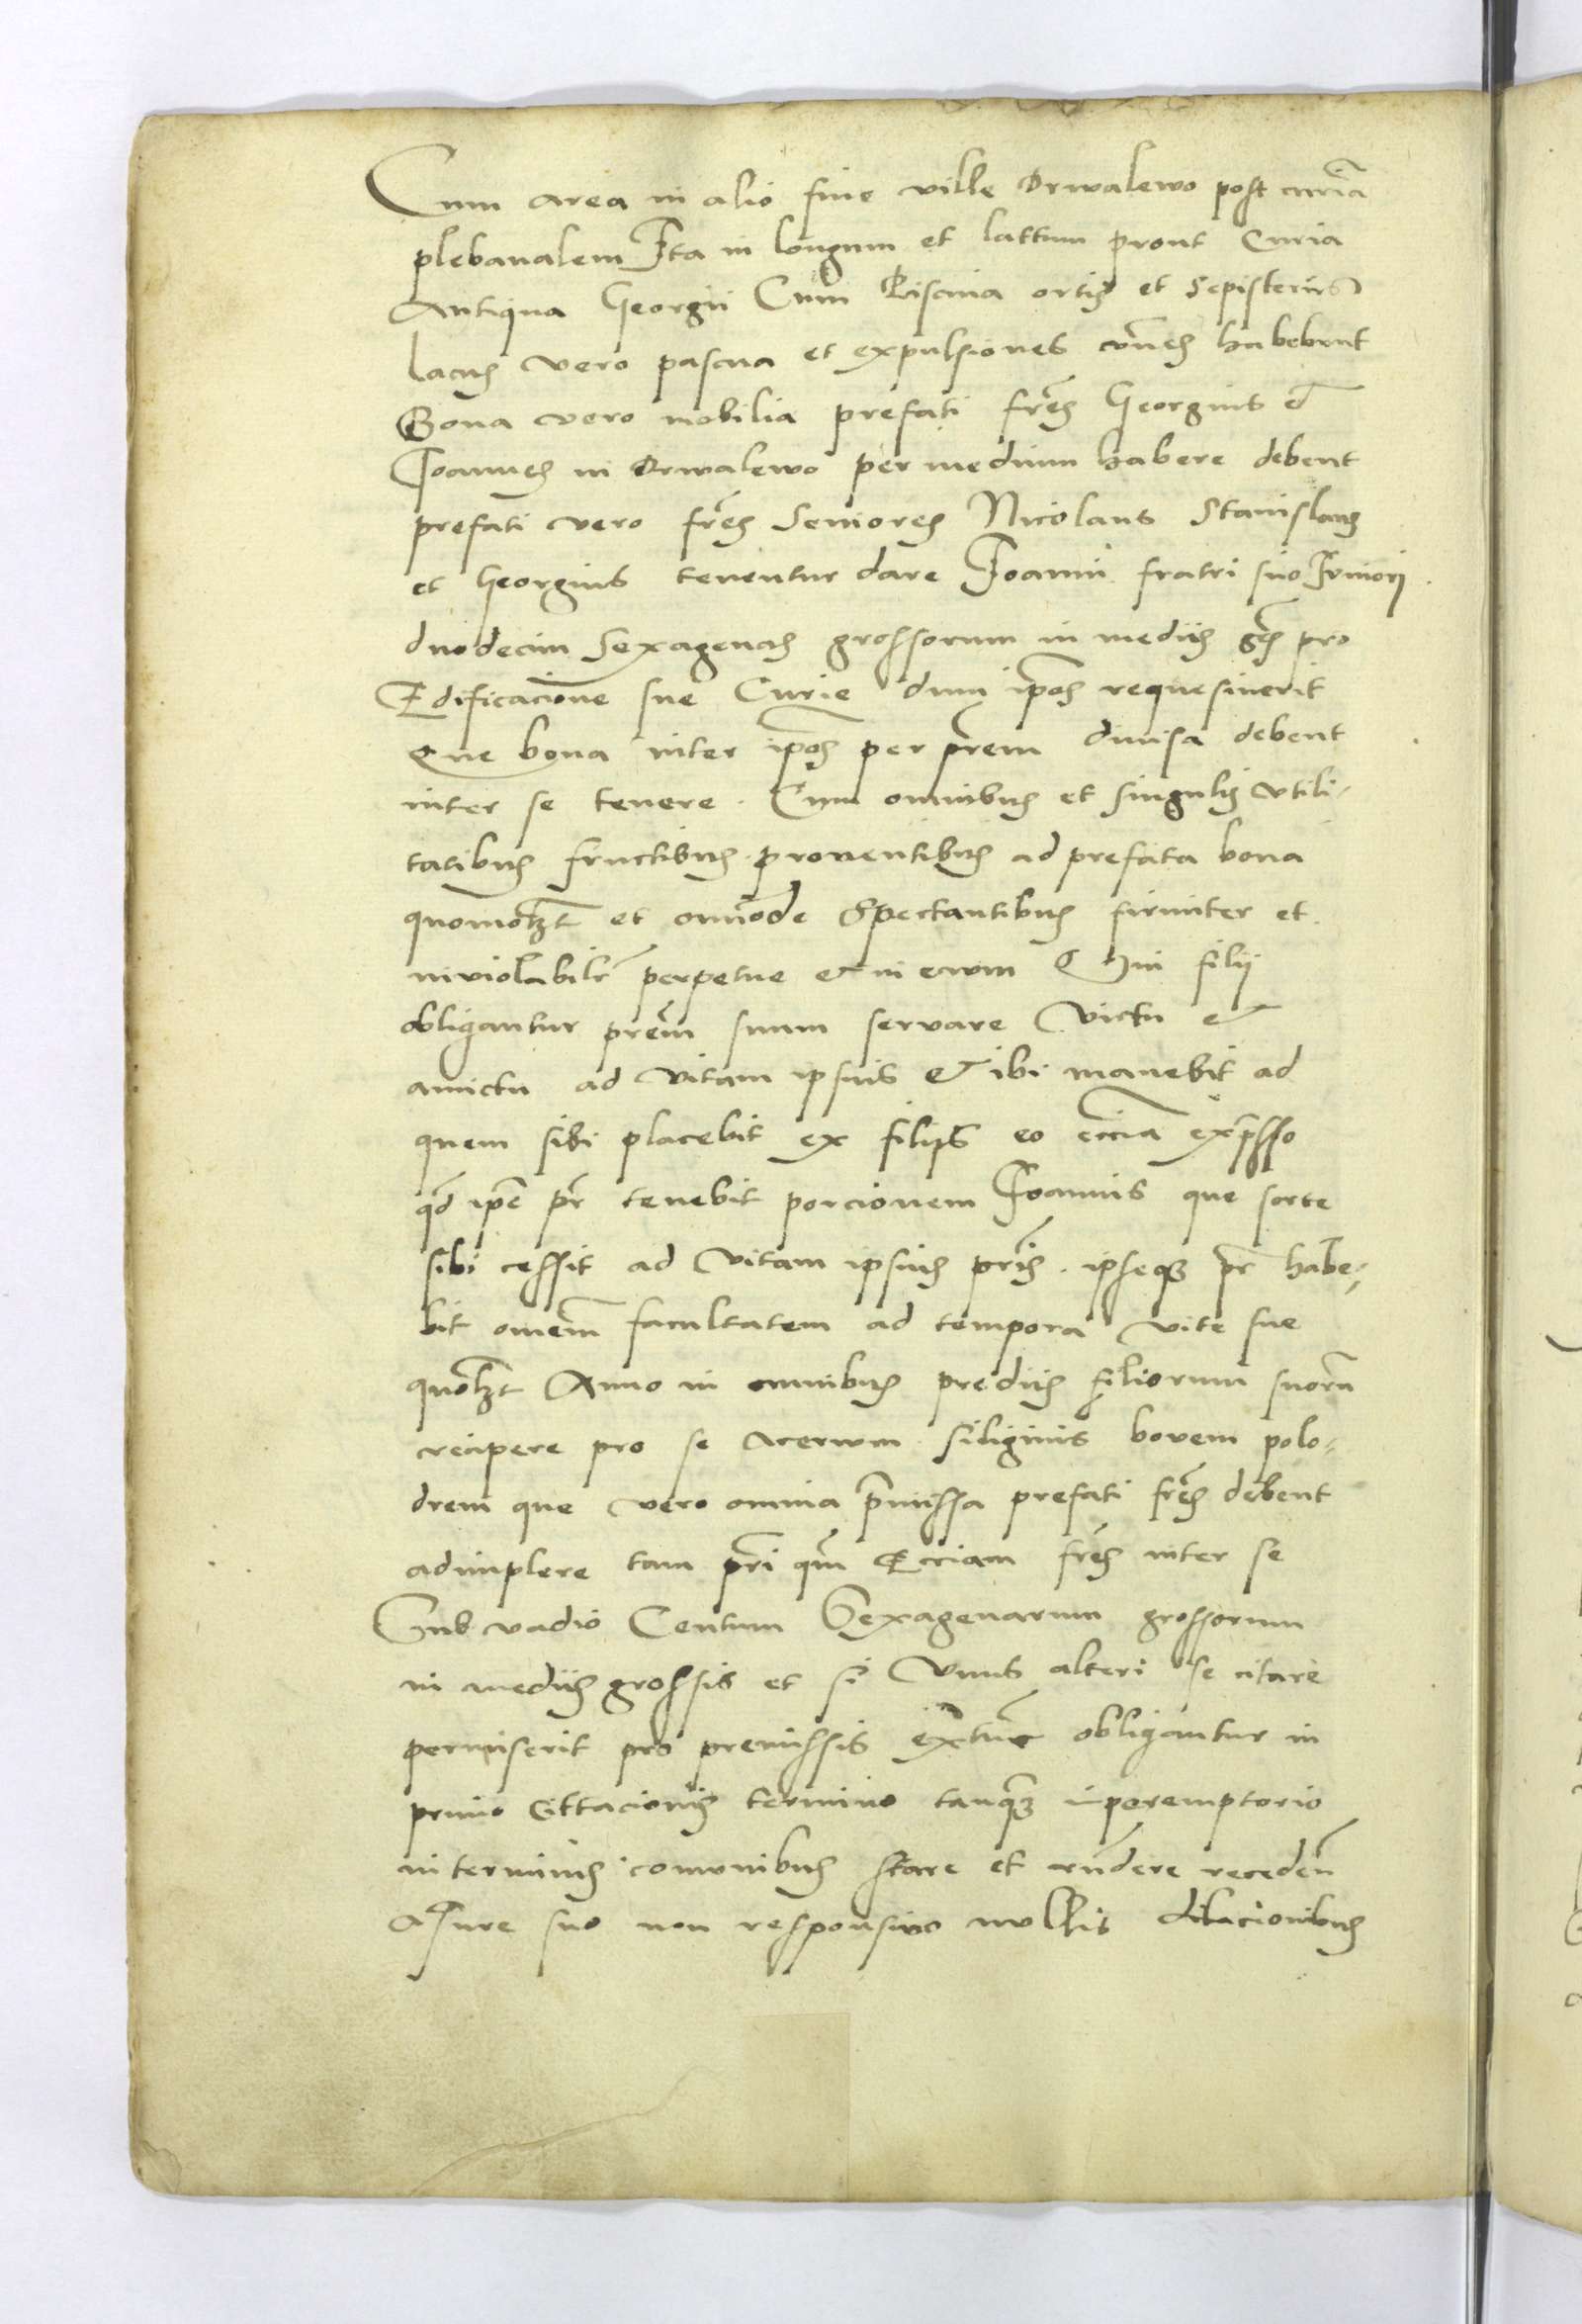 Cum area in alio fine ville Orwalewo post curiã
plebanalem Ita in longum et lattum prout Curia
Antiqua Georgii Cum Piscina ortis et Sepisteriis
lacus vero pascua et expulsiones cõnes habebunt
Bona vero mobilia prefati frẽs Georgius et
Joannes in Orwalewo per medium habere debent
prefati vero frẽs Seniores Nicolaus Stanislaus
et Georgius tenentur dare Joanni fratri suo Juniori
duodecim Sexagenas grossorum in mediis gr̃s pro
Edificacione sue Curie dum ip̃os requesiverit
Que bona inter ip̃os per pr̃em divisa debent
inter se tenere. Cum omnibus et singulis utili-
tatibus fructibus proventibus ad prefata bona
quomoꝫt et omõde Spectantibus firmiter et
inviolabilr̃ perpetue et in ewm Qui filii
obligantur prẽm suum servare Victu et
amictu ad Vitam ipsuis et ibi manebit ad
quem sibi placebit ex filiis eo eciã exp̃sso
qd̃ ip̃e pr̃ tenebit porcionem Joannis que sorte
sibi cessit ad Vitam ipsius pr̃is. ipseqꝫ pr̃ habe-
bit omẽm facultatem ad tempora vite sue
quoꝫt Anno in omnibus prediis filiorum suorũ
recipere pro se acerwm siliginis bovem polo-
drem que vero omnia p̃missa prefati frẽs debent
adimplere tam pr̃i qm̃ Eciam frẽs inter se
Sub vadio Centum Sexagenarum grossorum
in mediis grossis et si Unus alteri se citare
permiserit pro premissis extunc obligantur in
primo Cittacionis termino tanqꝫ in peremptorio
in terminis comunibus stare et rñdere recedeñ
A Jure suo non responsivo nullis dilacionibus